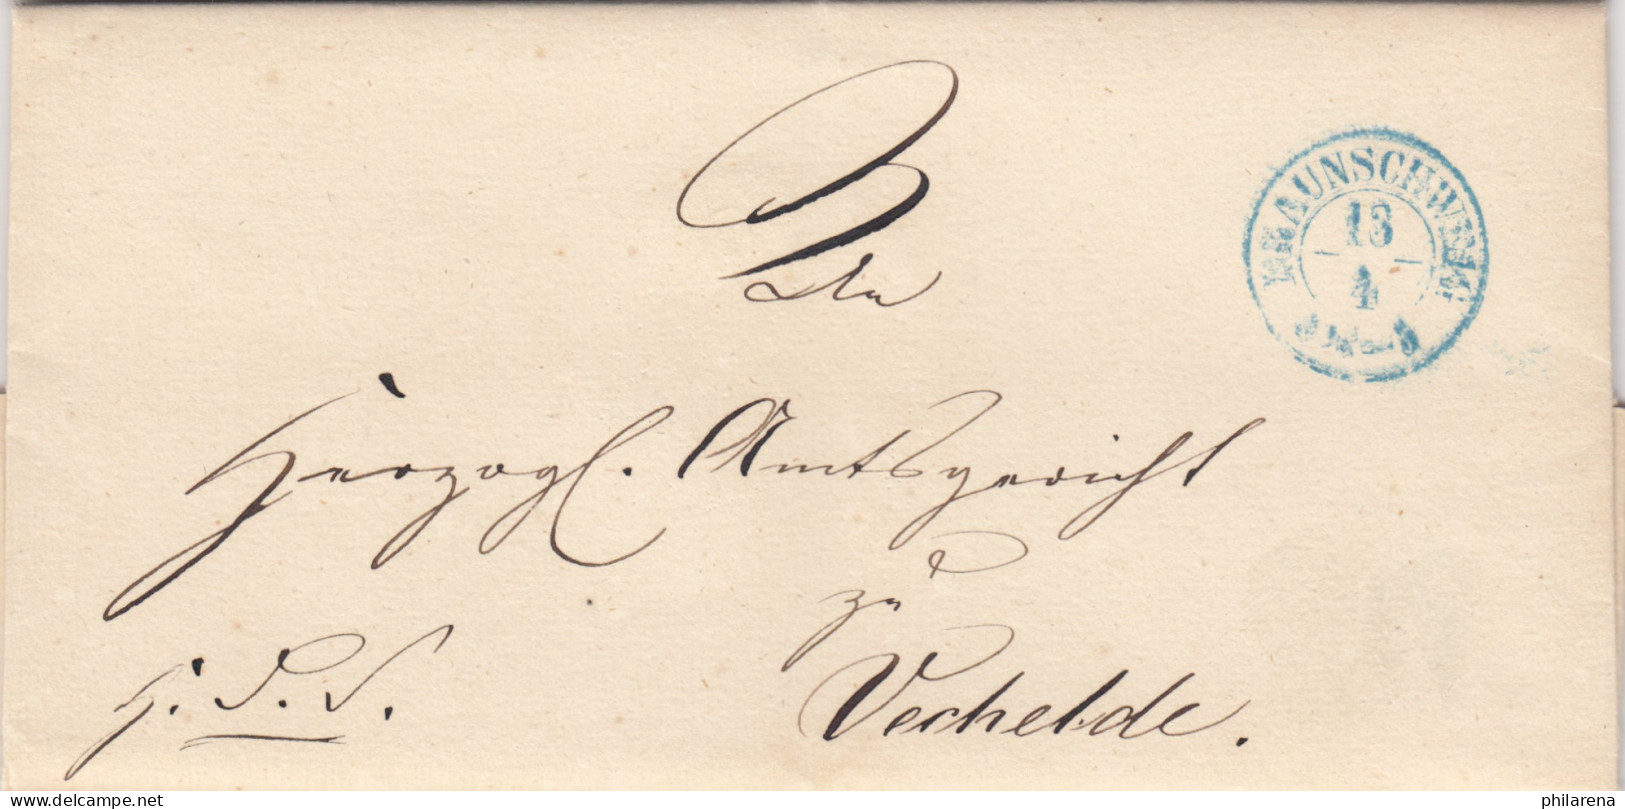 BRAUNSCHWEIG
13
4
An
Herzogl. Amtsgericht
zu
H. D. S.
Vechelde.
www.delcampe.net
philarena